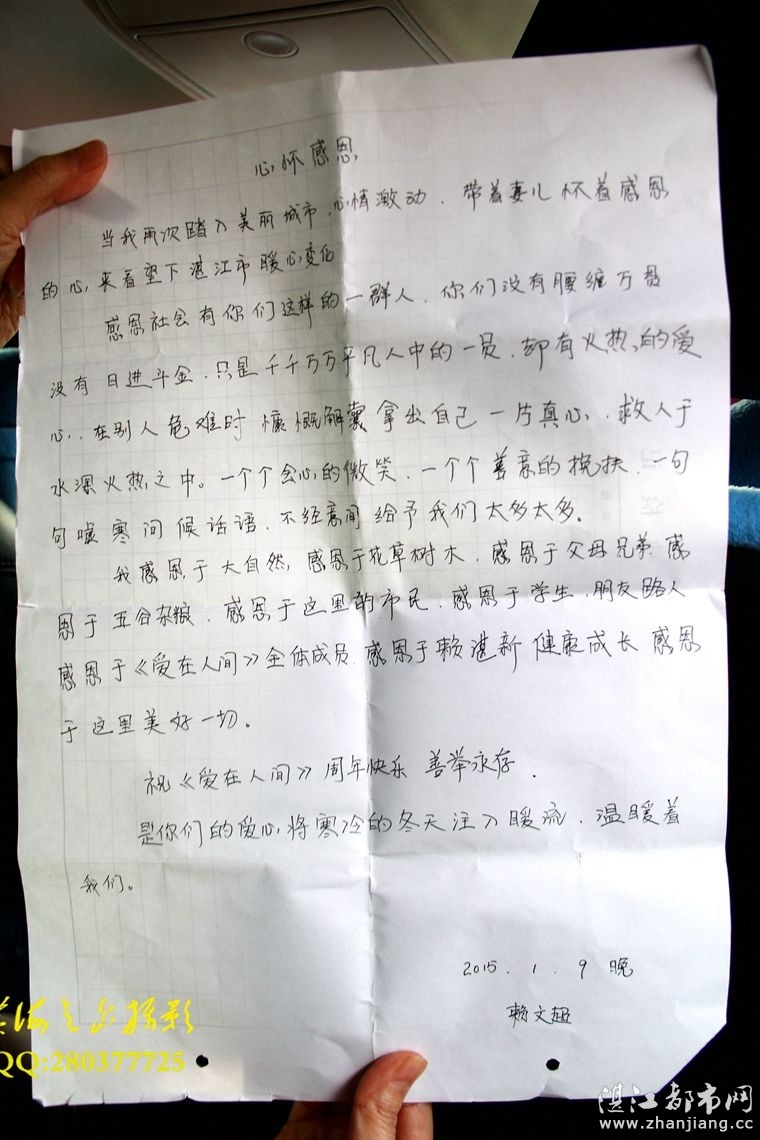 心怀感恩
当我再次踏入美丽城市,心情激动.带着妻儿怀着感恩
的心,来看望下湛江市暖心变化
感恩社会有你们这样的一群人.你们没有腰缠万贯
没有日进斗金.只是千千万万平凡人中的一员.却有火热的爱
心.在别人危难时慷慨解囊拿出自己一片真心.救人于
水深火热之中。一个个会心的微笑.一个个善意的搀扶.一句
句嘘寒问候话语.不经意间给予我们太多太多.
我感恩于大自然,感恩于花草树木.感恩于父母兄弟.感
恩于五谷杂粮.感恩于这里的市民.感恩于学生.朋友路人
感恩于《爱在人间》全体成员.感恩于赖湛新健康成长 感恩
于这里美好一切.
祝《爱在人间》周年快乐 善举永存.
是你们的爱心,将寒冷的冬天注入暖流.温暖着
我们。
2015.1.9晚
赖文超
摄影
QQ:280377725
湛江都市网
www.zhanjiang.cc